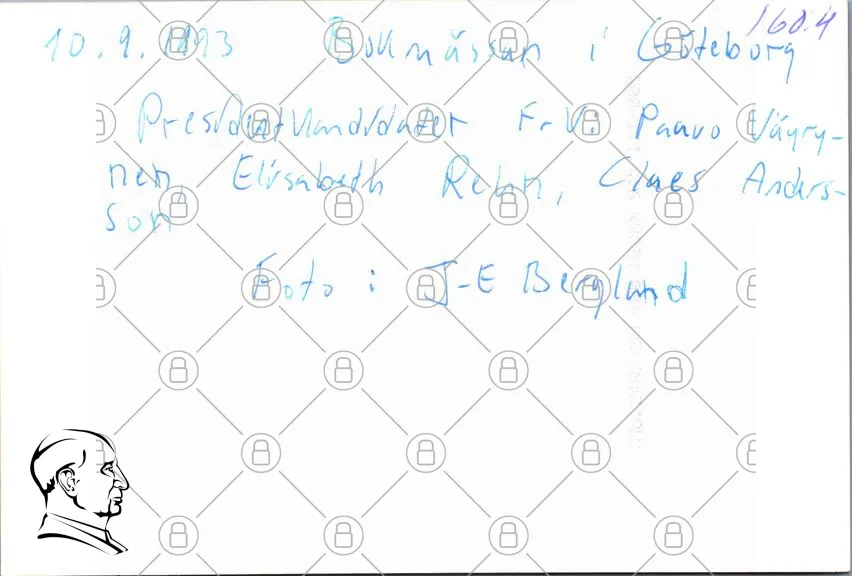 160.4
10.9.1993 Bokmässan i Göteborg
Presidentkandidater Fr.V: Paavo Väyry-
nen, Elisabeth Rehn, Claes Anders-
son
Foto: J-E Berglund